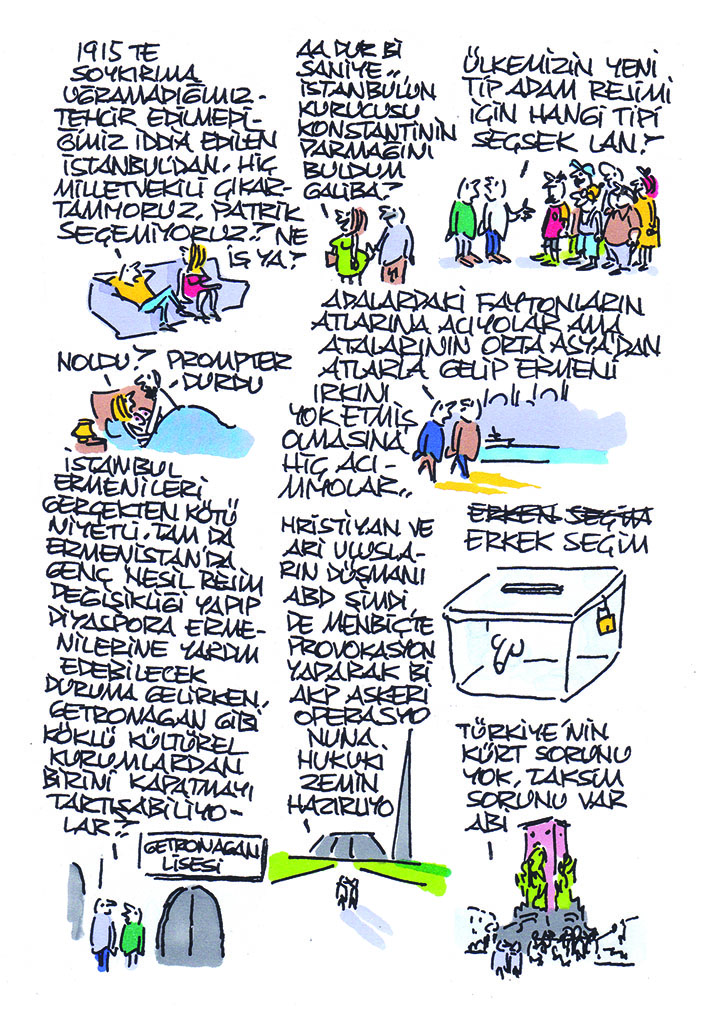 1915 TE
SOYKIRIMA
UĞRAMADIĞIMIZ -
TEHCİR EDİLMEDİ-
ĞİMİZ İDDİA EDİLEN
İSTANBUL'DAN, HİÇ
MİLLETVEKİLİ ÇIKAR-
TAMIYORUZ, PATRİK
SEÇEMİYORUZ? NE
İŞ YA?
AA DUR Bİ
SANİYE..
İSTANBUL'UN
KURUCUSU
KONSTANTİNİN
PARMAĞINI
BULDUM
GALİBA?
ÜLKEMİZİN YENİ
TİP ADAM REJİMİ
İÇİN HANGİ TİPİ
SEÇSEK LAN?
NOLDU? PROMPTER
DURDU
ADALARDAKİ FAYTONLARIN
ATLARINA ACIYOLAR AMA
ATALARININ ORTA ASYA'DAN
ATLARLA GELİP ERMENİ
IRKINI
YOK ETMİŞ
OLMASINA
HİÇ ACI-
MIYOLAR..
İSTANBUL
ERMENİLERİ
GERÇEKTEN KÖTÜ
NİYETLİ. TAM DA
ERMENİSTAN'DA
GENÇ NESİL REJİM
DEĞİŞİKLİĞİ YAPIP
DİYASPORA ERME-
NİLERİNE YARDIM
EDEBİLECEK
DURUMA GELİRKEN,
GETRONAGAN GİBİ
KÖKLÜ KÜLTÜREL
KURUMLARDAN
BİRİNİ KAPATMAYI
TARTIŞABİLİYO-
LAR?
GETRONAGAN
LİSESİ
HRİSTİYAN VE
ARİ ULUSLA-
RIN DÜŞMANI
ABD ŞİMDİ
DE MENBİÇ'TE
PROVOKASYON
YAPARAK Bİ
AKP ASKERİ
OPERASYO
NUNA
HUKUKİ
ZEMİN
HAZIRLIYO
ERKEN SEÇİM
ERKEK SEÇİM
TÜRKİYE'NİN
KÜRT SORUNU
YOK, TAKSİM
SORUNU VAR
ABİ